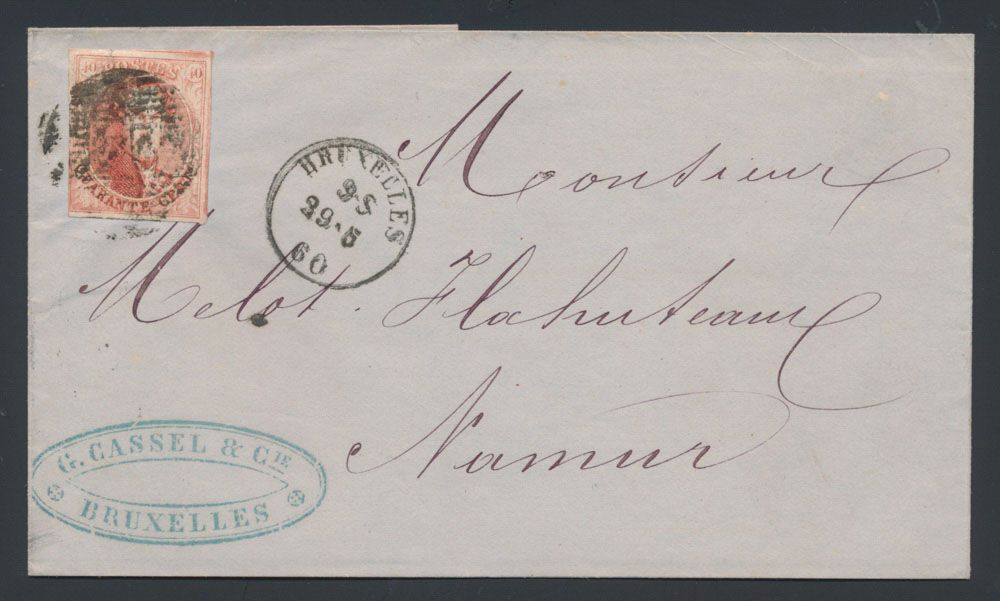 40 POSTES 40
QUARANTE CENT
BRUXELLES
9-S
29·5
60
Monsieur
Melot. Flahuteaux
Namur
G. CASSEL & CIE
BRUXELLES